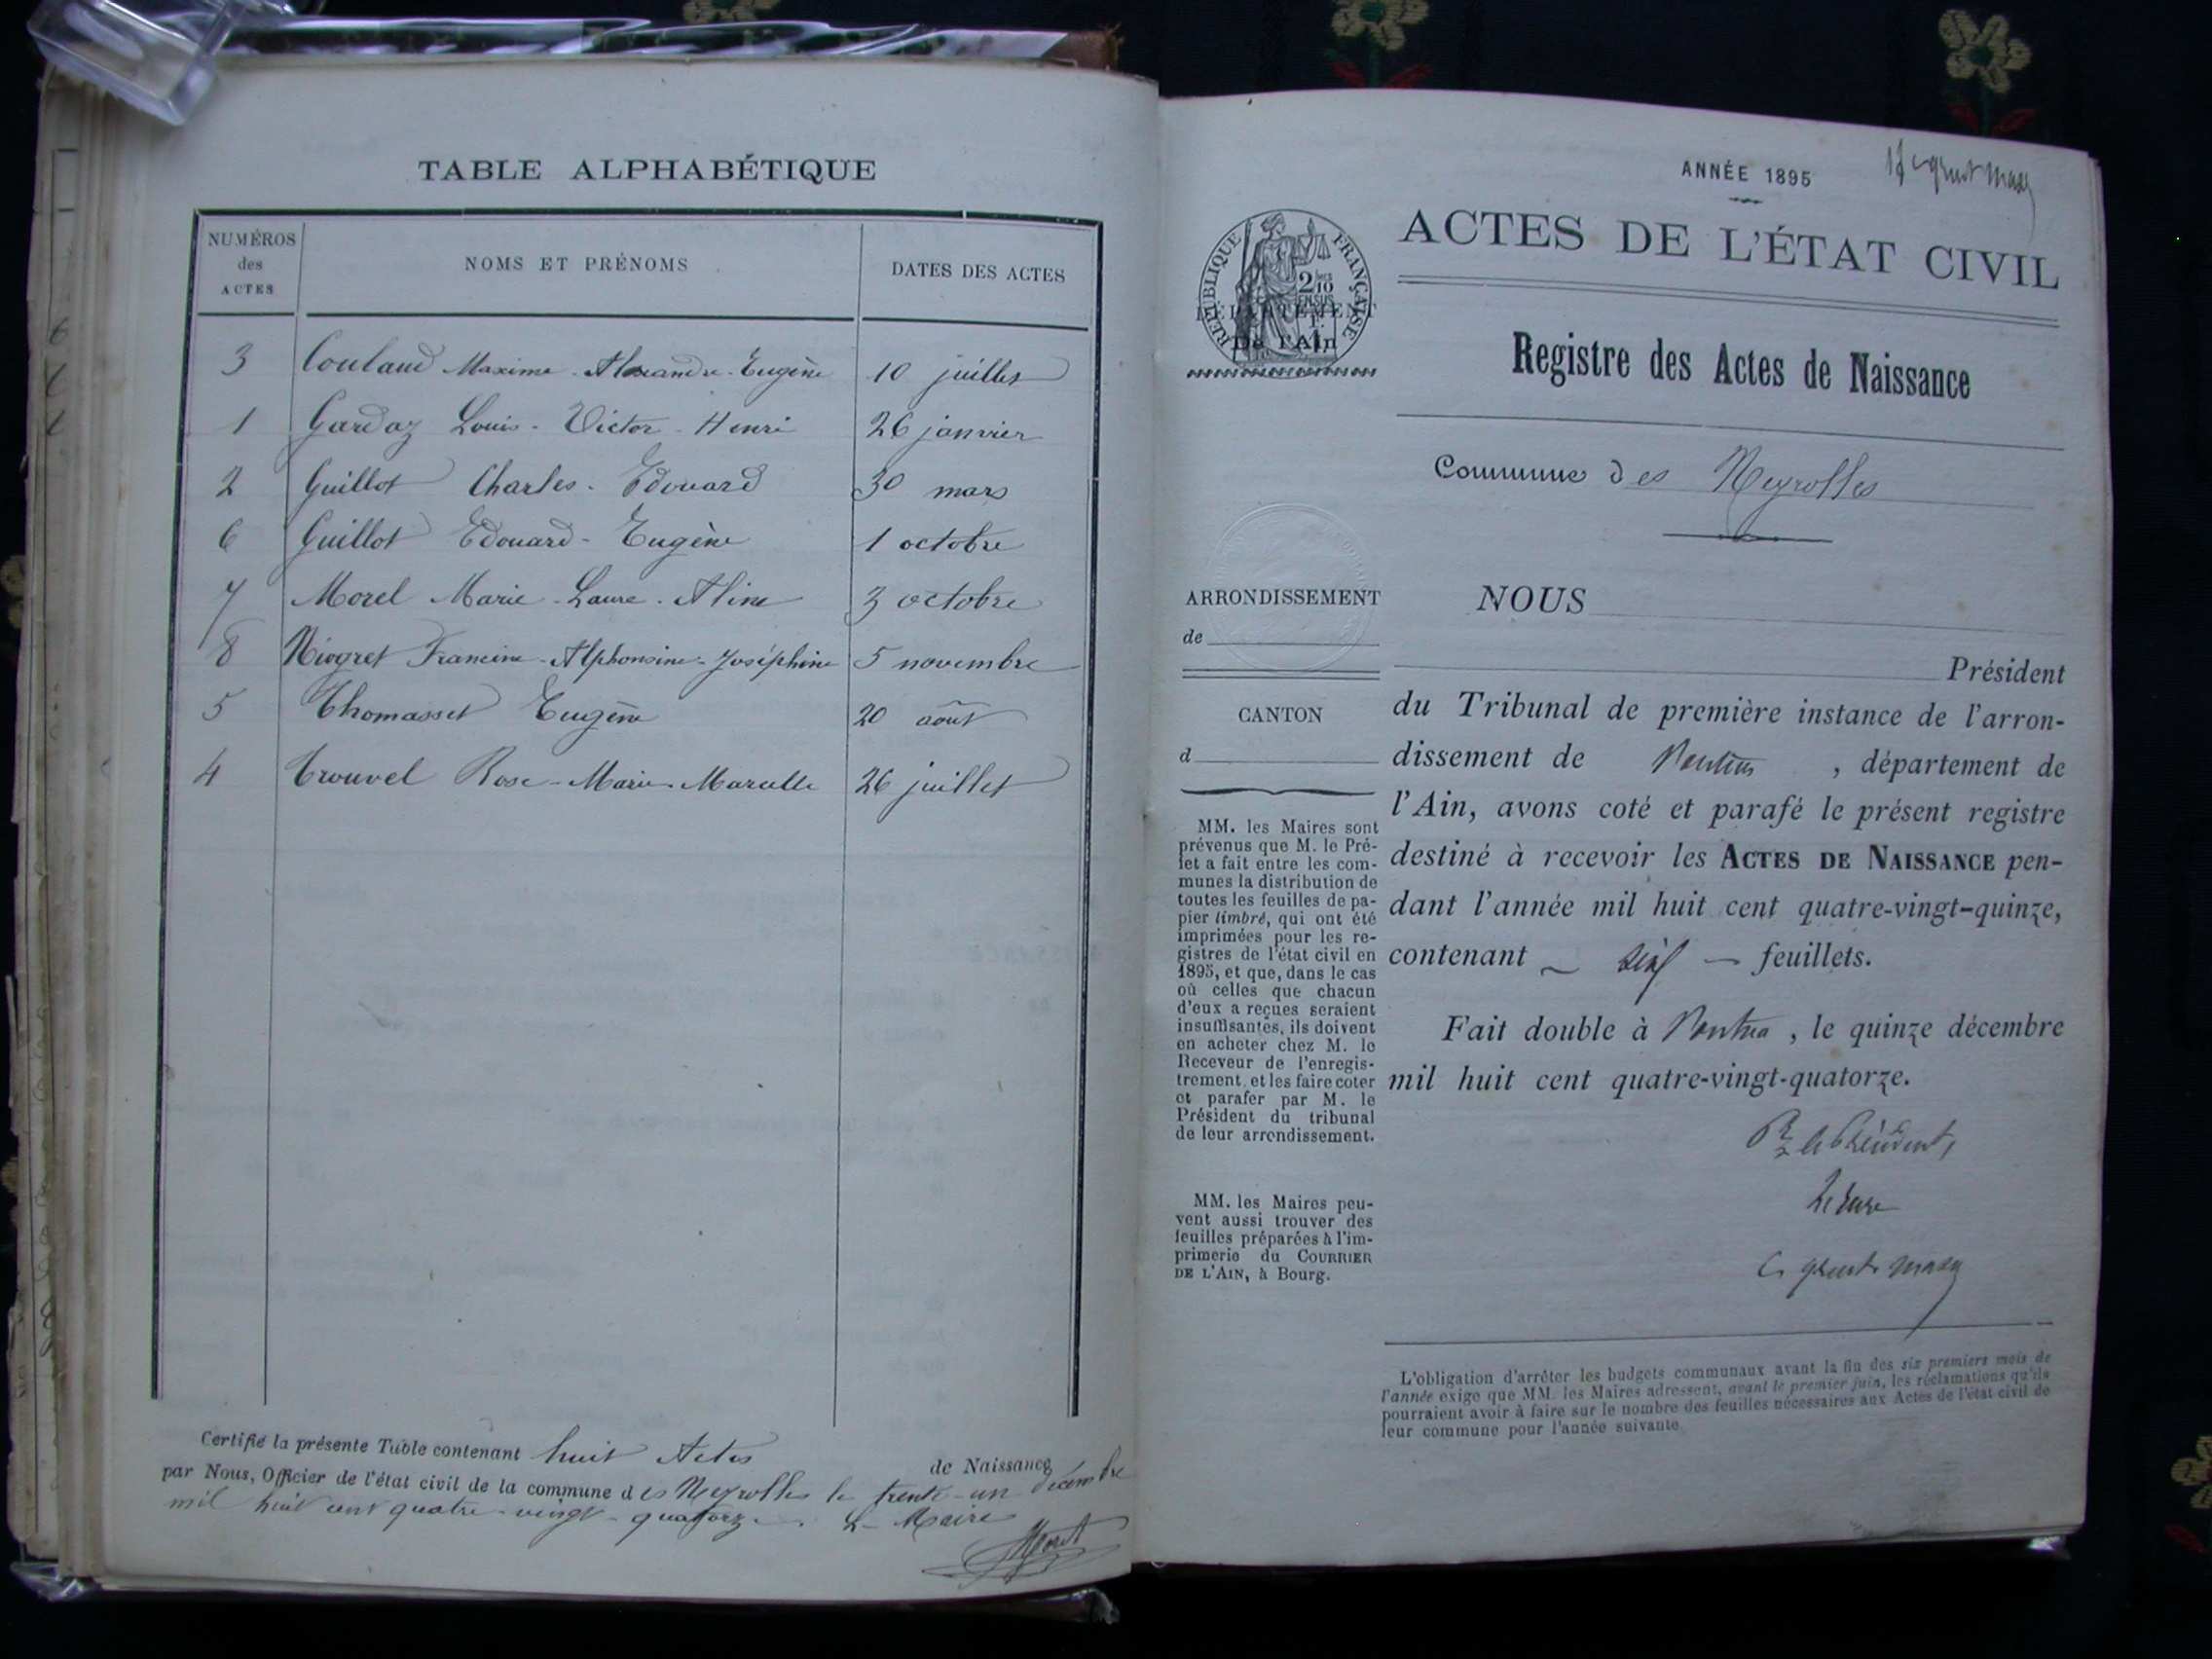 TABLE ALPHABÉTIQUE
NUMÉROS des ACTES NOMS ET PRÉNOMS DATES DES ACTES
3 Coulaud Maxime-Alexandre-Eugène 10 juillet
1 Gardaz Louis-Victor-Henri 26 janvier
2 Guillot Charles-Edouard 30 mars
6 Guillot Edouard-Eugène 1 octobre
7 Morel Marie-Laure-Aline 3 octobre
8 Niogret Francine-Alphonsine-Joséphine 5 novembre
5 Thomasset Eugène 20 août
4 Trouvel Rose-Marie-Marcelle 26 juillet
Certifié la présente Table contenant huit Actes de Naissance
par Nous, Officier de l'état civil de la commune des Neyrolles le trente-un décembre
mil huit cent quatre-vingt-quatorze. Le Maire
ANNÉE 1895
ACTES DE L'ÉTAT CIVIL
RÉPUBLIQUE FRANÇAISE
2/10 EN SUS
1 F.
DÉPARTEMENT
De l'Ain
Registre des Actes de Naissance
Commune des Neyrolles
ARRONDISSEMENT
de
CANTON
d
MM. les Maires sont
prévenus que M. le Pré-
fet a fait entre les com-
munes la distribution de
toutes les feuilles de pa-
pier timbré, qui ont été
imprimées pour les re-
gistres de l'état civil en
1895, et que, dans le cas
où celles que chacun
d'eux a reçues seraient
insuffisantes, ils doivent
en acheter chez M. le
Receveur de l'enregis-
trement, et les faire coter
et parafer par M. le
Président du tribunal
de leur arrondissement.
MM. les Maires peu-
vent aussi trouver des
feuilles préparées à l'im-
primerie du COURRIER
DE L'AIN, à Bourg.
NOUS
Président
du Tribunal de première instance de l'arron-
dissement de Nantua, département de
l'Ain, avons coté et parafé le présent registre
destiné à recevoir les ACTES DE NAISSANCE pen-
dant l'année mil huit cent quatre-vingt-quinze,
contenant feuillets.
Fait double à Nantua, le quinze décembre
mil huit cent quatre-vingt-quatorze.
Pr le Président,
L'obligation d'arrêter les budgets communaux avant la fin des six premiers mois de
l'année exige que MM. les Maires adressent, avant le premier juin, les réclamations qu'ils
pourraient avoir à faire sur le nombre des feuilles nécessaires aux Actes de l'état civil de
leur commune pour l'année suivante.